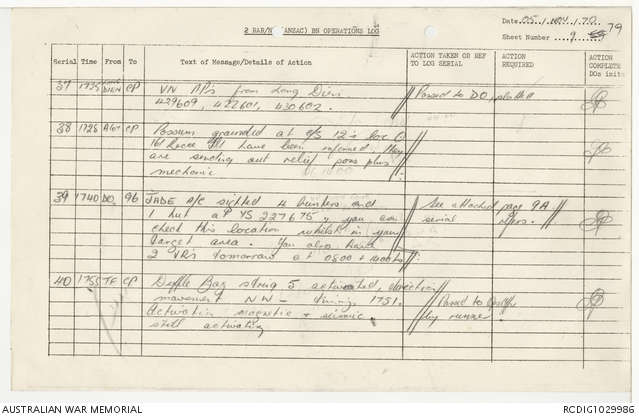 Date 05/NOV/70
2 RAR/N (ANZAC) BN OPERATIONS LOG
Sheet Number 9 79
Serial Time From To Text of Message/Details of Action ACTION TAKEN OR REF TO LOG SERIAL ACTION REQUIRED ACTION COMPLETE DOs inits
37 1735 LONG DIEN CP VN APs from Long Dien Passed to DO, plotted
429609, 422601, 430602.
38 1738 CP Possum grounded at c/s 12's loc
161 Recce have been informed, They
are sending out relief poss plus
mechanic
39 1740 DO 96 JADE A/C sighted 4 bunkers and See attached page 9A
1 hut at YS 227675, you can serial refers.
check this location whilst in your
target area. You also have
2 VRs tomorrow at 0800 + 1400 hrs
40 1755 TF CP Duffle Bag string 5 activated, direction
movement NW - timing 1751. Passed to
Activation magnetic + seismic by runner.
still activating
AUSTRALIAN WAR MEMORIAL
RCDIG1029986